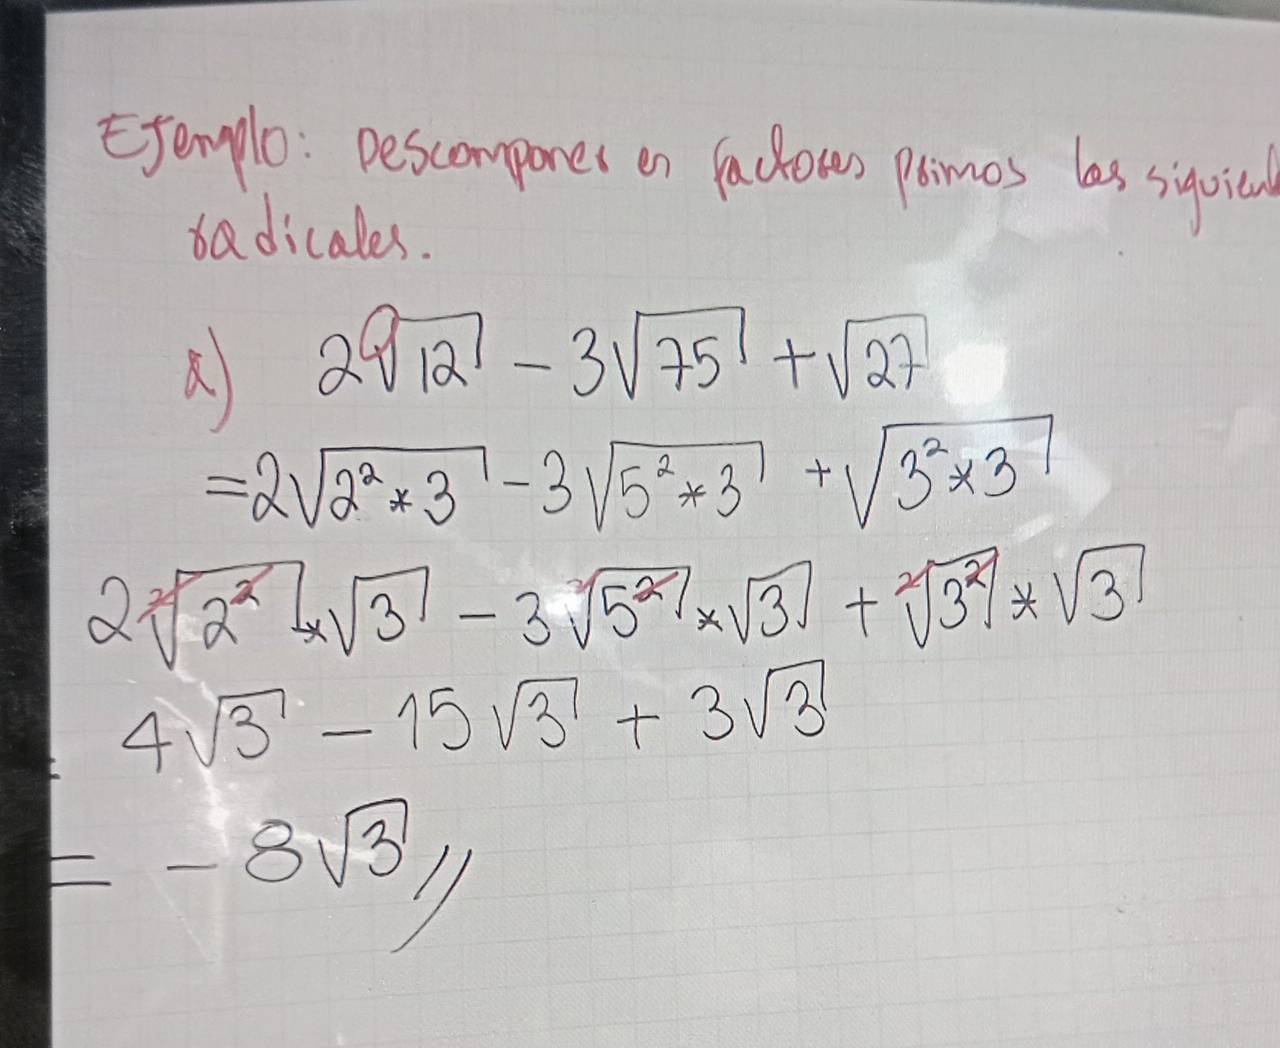 Ejemplo: Descomponer en factores primos los siguient
radicales.
a) 2√12 - 3√75 + √27
= 2√2² * 3 - 3√5² * 3 + √3² * 3
2 ²√2² * √3 - 3 ²√5² * √3 + ²√3² * √3
4√3 - 15√3 + 3√3
= - 8√3 //